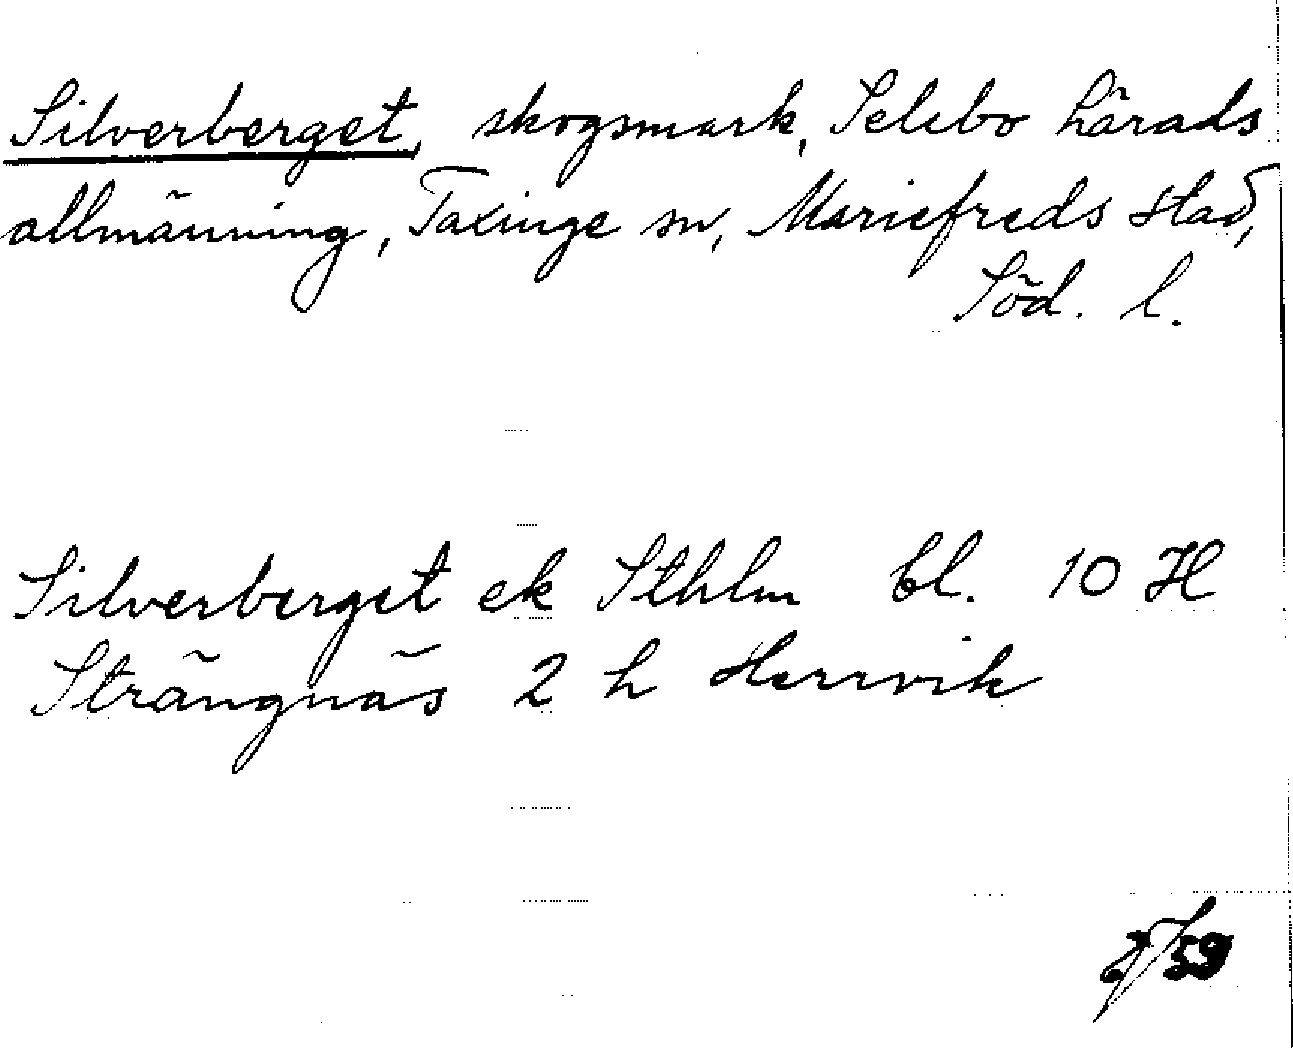 Silverberget, skogsmark, Selebo härads
allmänning, Taxinge sn, Mariefreds stad,
Söd. l.
Silverberget ek Sthlm bl. 10 H
Strängnäs 2 h Herrvik